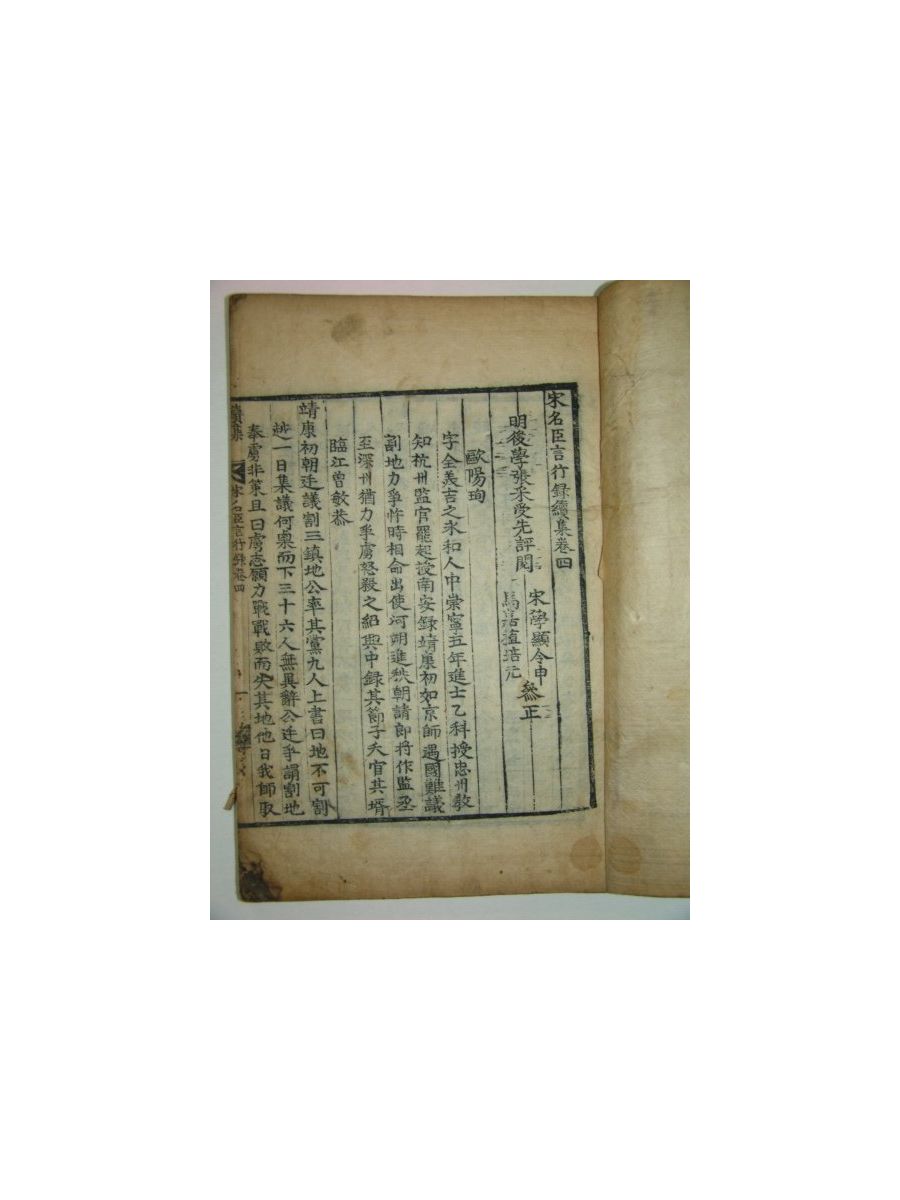 宋名臣言行録續集卷四
明後學張采受先評閱
宋學顯令申
馬嘉植培元
參正
歐陽珣
字全美吉之永和人中崇寧五年進士乙科授忠州敎
知杭州監官罷起授南安錄靖康初如京師遇國難議
割地力爭忤時相命出使河朔進秩朝請郎將作監丞
至深州猶力爭虜怒殺之紹興中録其節子夭官其壻
臨江曾敏恭
靖康初朝廷議割三鎮地公率其黨九人上書曰地不可割
越一日集議何㮚而下三十六人無異辭公廷爭謂割地
奉虜非策且曰虜志願力戰戰敗而失其地他日我師取
續集
宋名臣言行録卷四
一